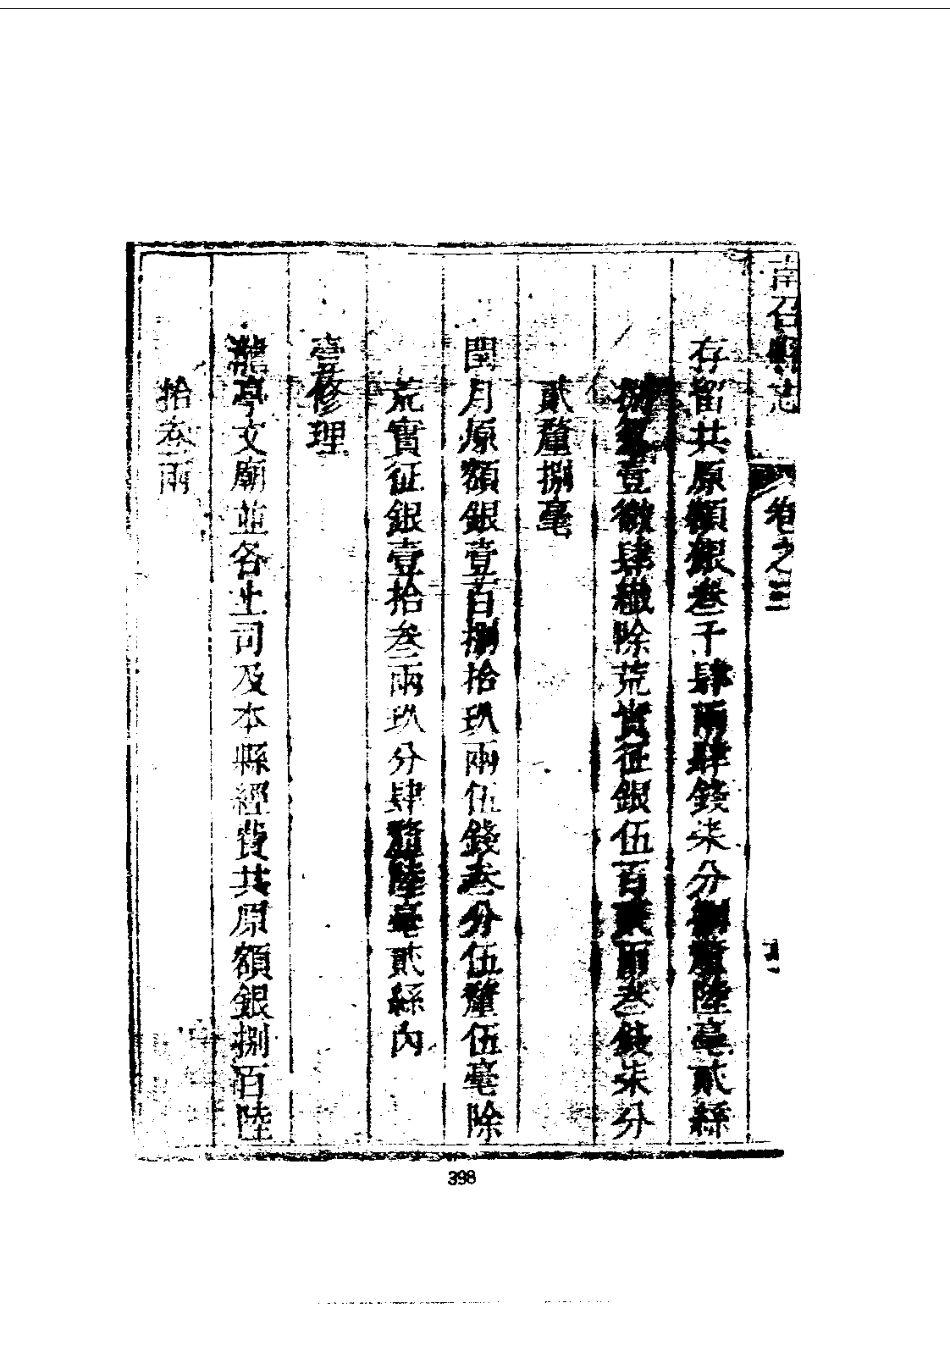 南召縣志 卷之三
存留共原額銀叁千肆兩肆錢柒分捌釐陸毫貳絲
捌忽壹微肆纖除荒實征銀伍百貳兩叁錢柒分
貳釐捌毫
閏月原額銀壹百捌拾玖兩伍錢叁分伍釐伍毫除
荒實征銀壹拾叁兩玖分肆釐陸毫貳絲內
壹修理
龍亭文廟並各上司及本縣經費共原額銀捌百陸
拾叁兩
398